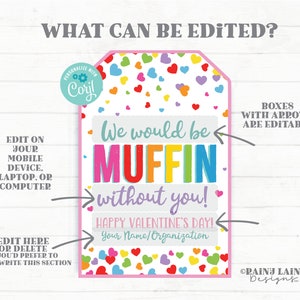 WHAT CAN BE EDITED?
PERSONALIZE WITH
Corjl
We would be
MUFFIN
without you!
HAPPY VALENTINE'S DAY!
Your Name/Organization
BOXES
WITH ARROW
ARE EDITAB
EDIT ON
YOUR
MOBILE
DEVICE,
LAPTOP, OR
COMPUTER
EDIT HERE
OR DELETE
OU'D PREFER TO
WRITE THIS SECTION
©RAINJ LAINE
Designs